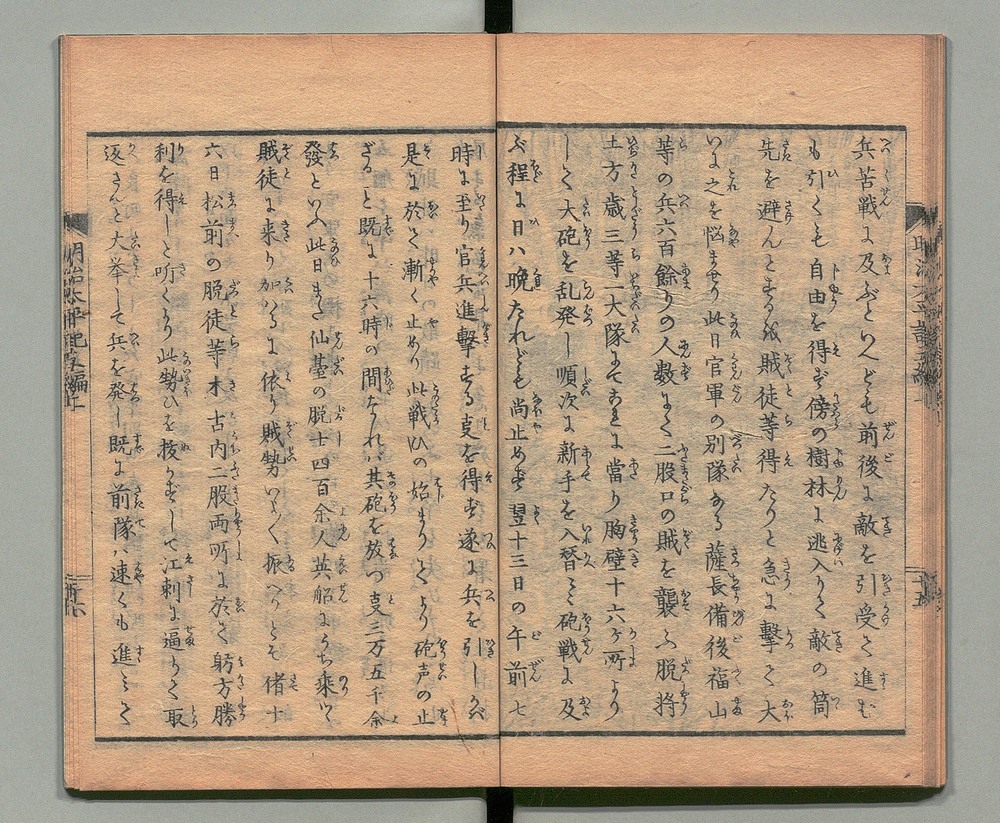 兵苦戦に及ぶといへども前後に敵を引受て進む
も引くも自由を得ず傍の樹林に逃入りて敵の筒
先を避んとするを賊徒等得たりと急に撃て大
いに之を悩ませり此日官軍の別隊ある薩長備後福山
等の兵六百餘りの人数にて二股口の賊を襲ふ脱将
土方歳三等一大隊にてこれに當り胸壁十六ヶ所より
しく大砲を乱発し順次に新手を入替々々砲戦に及
ぶ程に日ハ晩たれども尚止めず翌十三日の午前七
時に至り官兵進撃する事を得ず遂に兵を引しかバ
是に於て漸く止めり此戦ひの始まりてより砲声の止
ざること既に十六時の間なれバ其砲を放つ事三万五千余
發といふ此日また仙臺の脱士四百余人英船にうち乗て
賊徒に来り加ハるに依り賊勢いよ〳〵振へりとぞ偖十
六日松前の脱徒等木古内二股両所に於て躬方勝
利を得しと听くより此勢ひを抜かずして江刺に逼りて取
返さんと大挙して兵を発し既に前隊ハ速くも進ミて
明治太平記